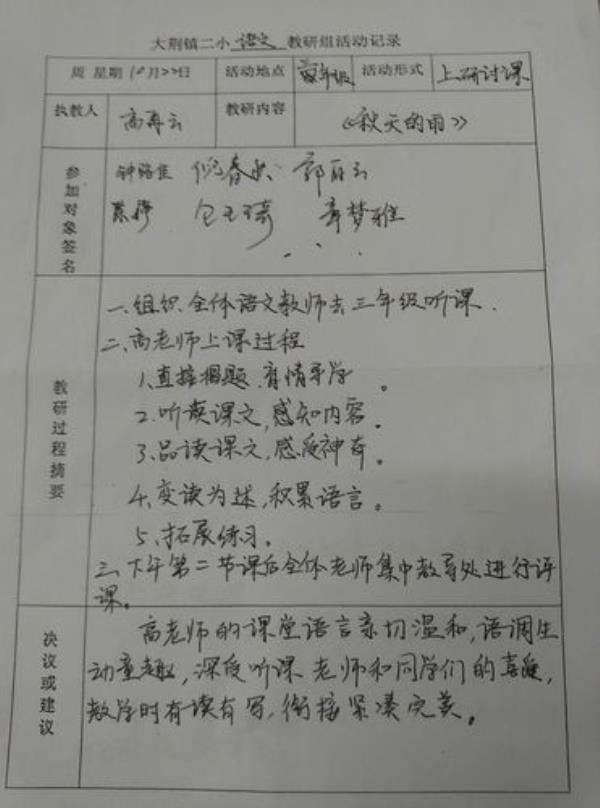 大荆镇二小 语文 教研组活动记录
周 星期 10月22日 活动地点 年级 活动形式 上研讨课
执教人 高再云 教研内容 《秋天的雨》
参加对象签名
倪春 郭
包玉琦 章梦雅
教研过程摘要
一、组织全体语文教师去三年级听课.
二、高老师上课过程
1、直接揭题,有情导学。
2、听读课文,感知内容。
3、品读课文,感受神奇。
4、变读为述,积累语言。
5、拓展练习。
三、下午第二节课后全体老师集中教导处进行评
课。
决议或建议
高老师的课堂语言亲切温和,语调生
动童趣,深受听课老师和同学们的喜爱,
教学时有读有写,衔接紧凑完美。